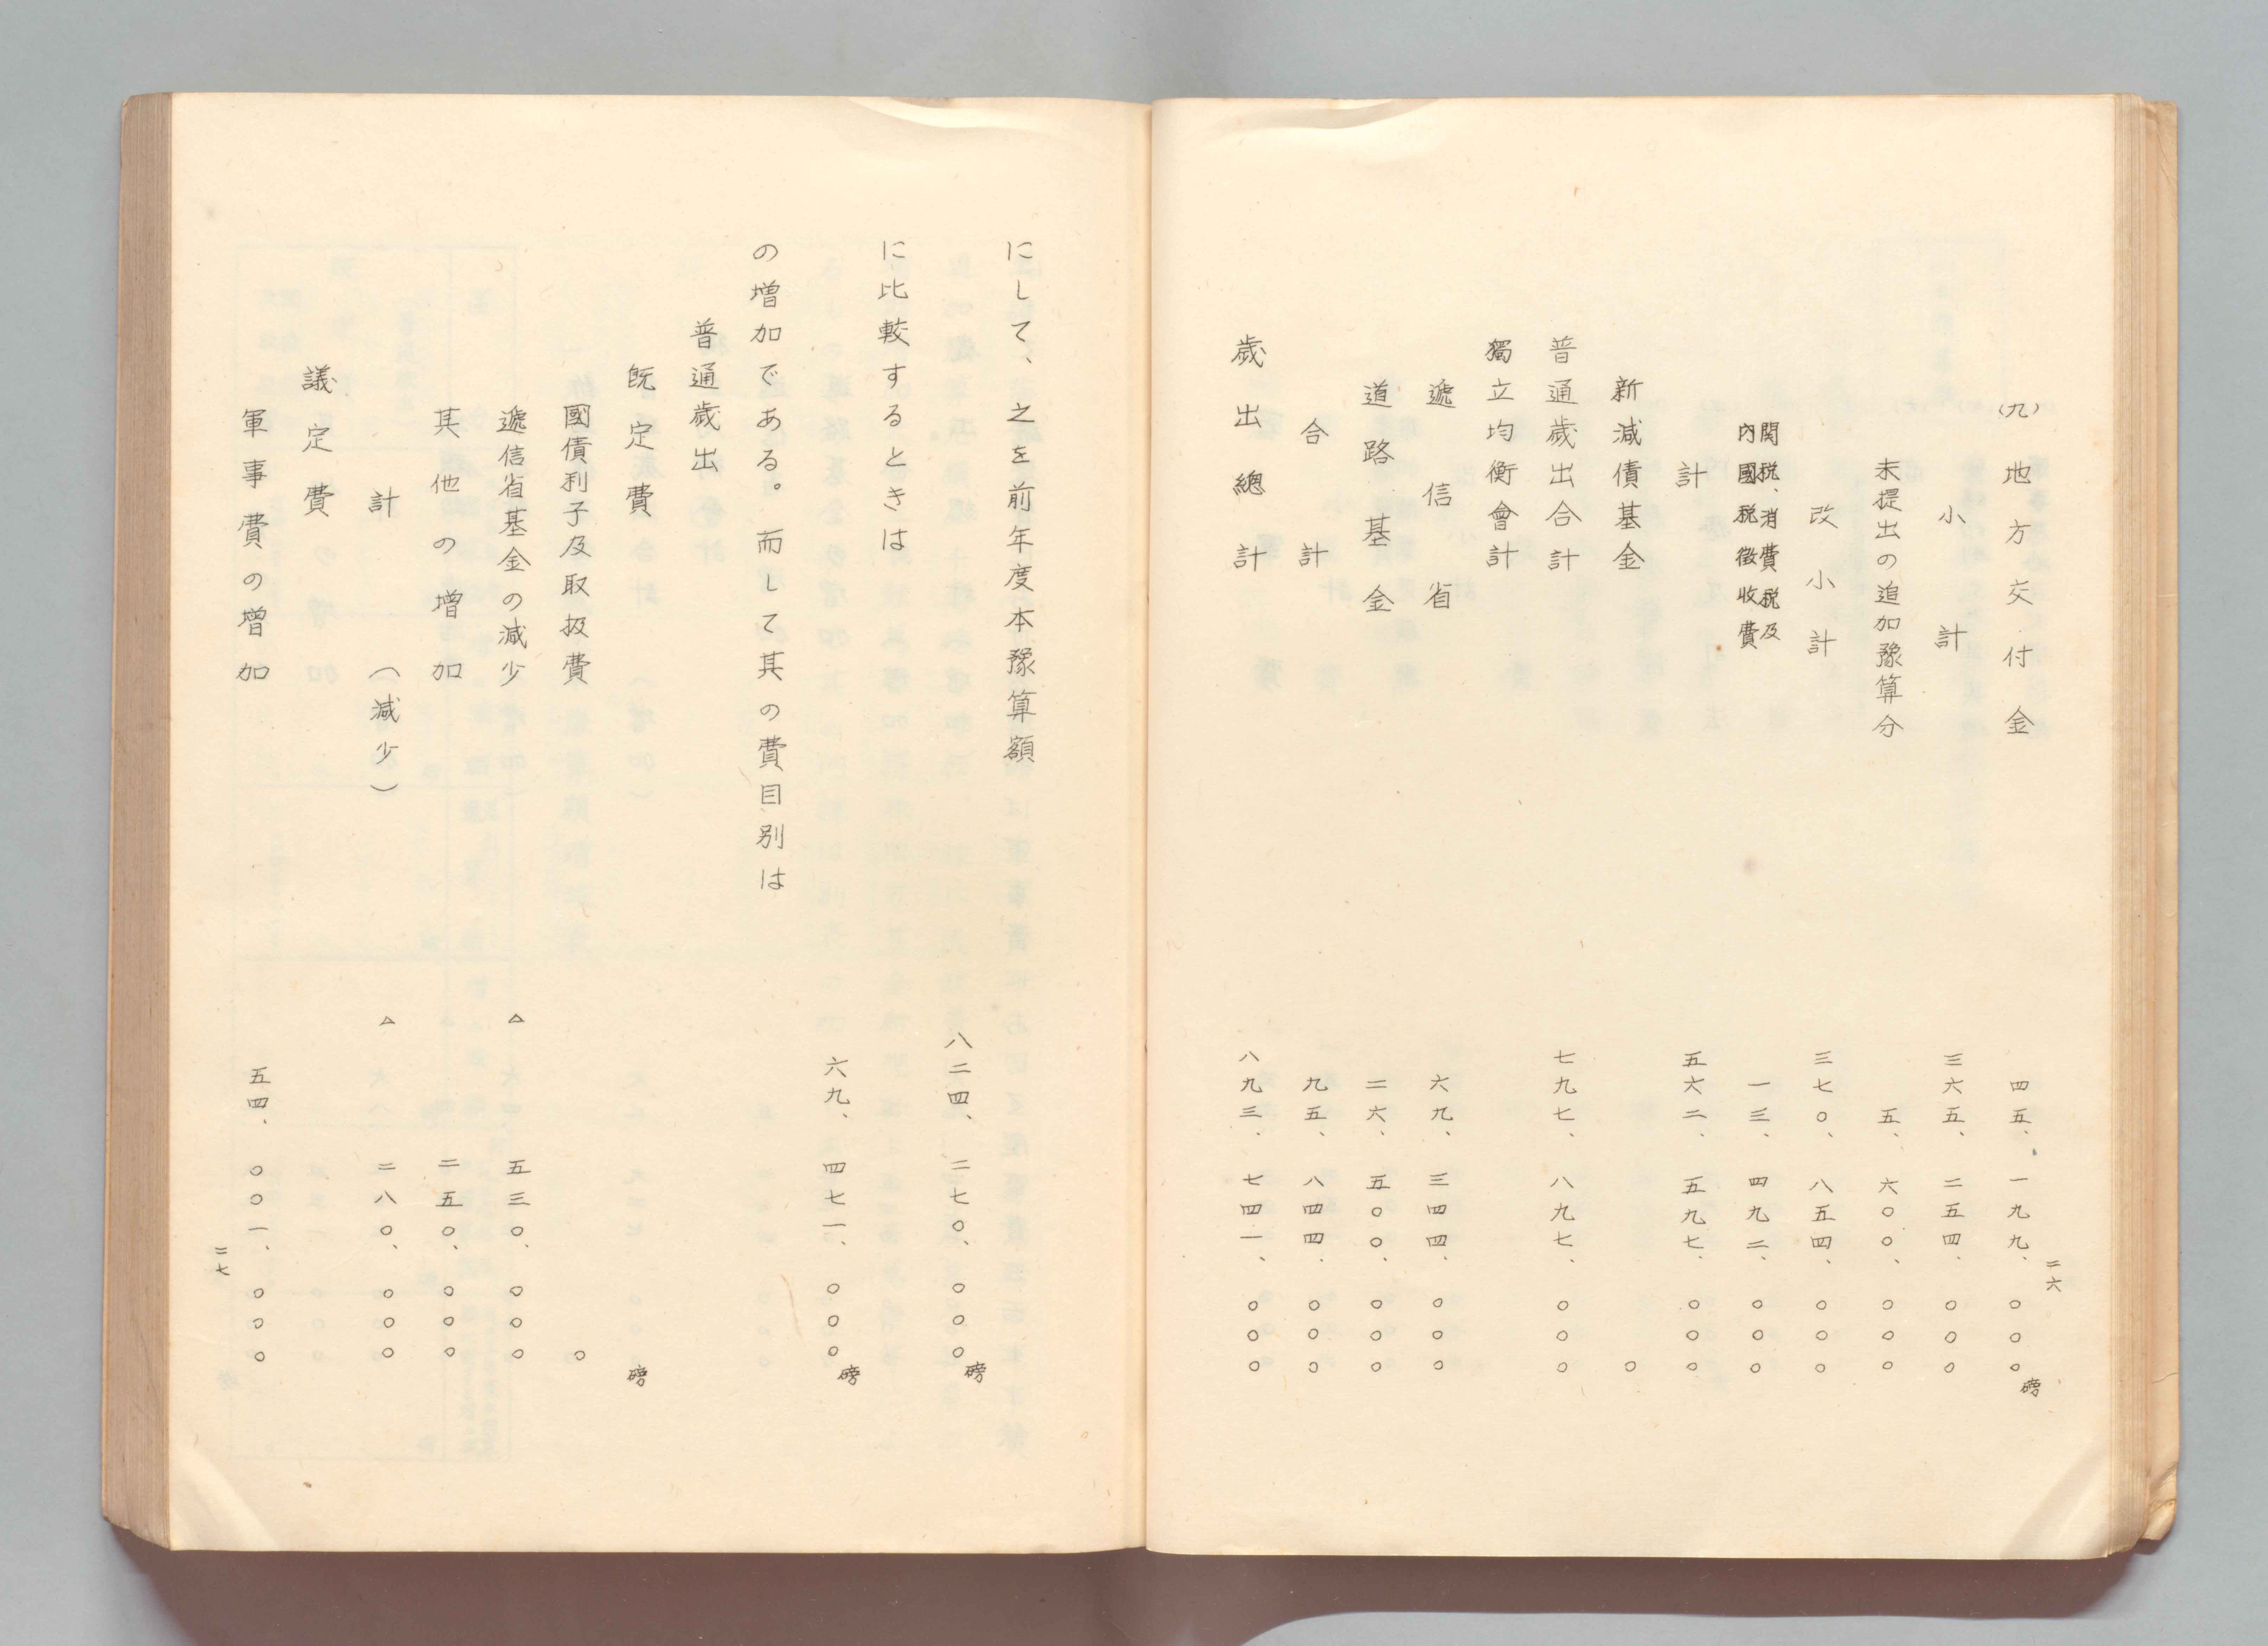 (九)地方交付金 四五、一九九、〇〇〇磅
小計 三六五、二五四、〇〇〇
未提出の追加豫算分 五、六〇〇、〇〇〇
改小計 三七〇、八五四、〇〇〇
関税、消費税及
内國税徴收費 一三、四九二、〇〇〇
計 五六二、五九七、〇〇〇
新減債基金 〇
普通歳出合計 七九七、八九七、〇〇〇
獨立均衡會計
遞信省 六九、三四四、〇〇〇
道路基金 二六、五〇〇、〇〇〇
合計 九五、八四四、〇〇〇
歳出總計 八九三、七四一、〇〇〇
二六
にして、之を前年度本豫算額
八二四、二七〇、〇〇〇磅
に比較するときは
六九、四七一、〇〇〇磅
の増加である。而して其の費目別は
普通歳出
既定費 磅
國債利子及取扱費 〇
遞信省基金の減少 △ 五三〇、〇〇〇
其他の増加 二五〇、〇〇〇
計(減少) △ 二八〇、〇〇〇
議定費
軍事費の増加 五四、〇〇一、〇〇〇
二七